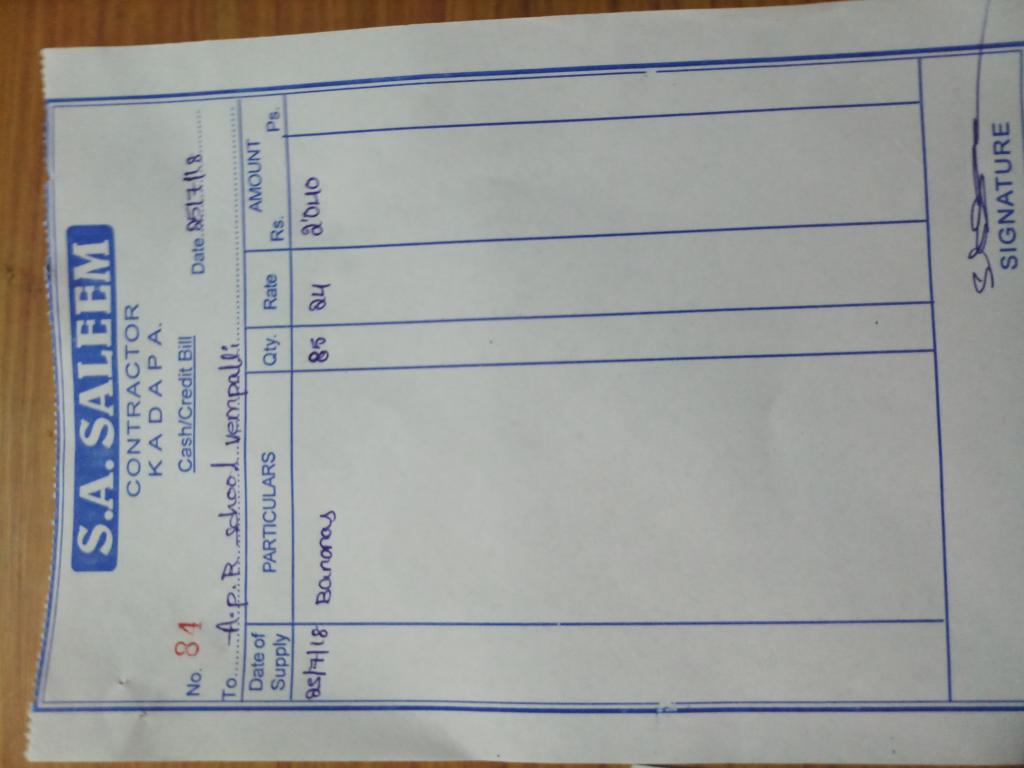 S.A. SALEEM
CONTRACTOR
KADAPA.
Cash/Credit Bill
No. 84 Date 25/7/18
To A.P.R. School Vempalli
Date of Supply PARTICULARS Qty. Rate AMOUNT Rs. Ps.
25/7/18 Bananas 85 24 2040
SIGNATURE